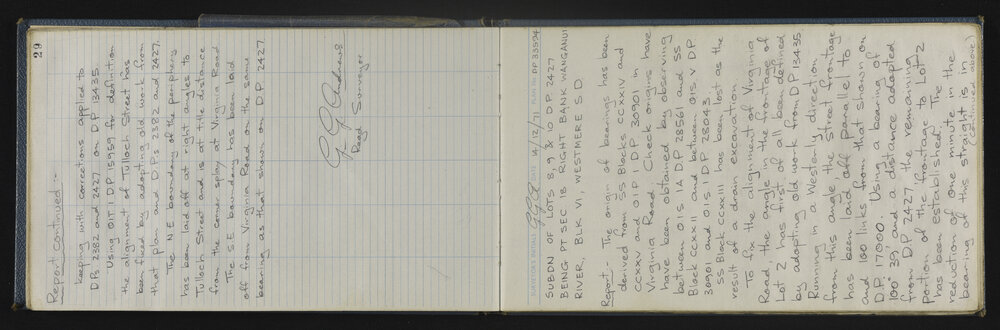 29
Report continued :-
keeping with corrections applied to
DPs 2382 and 2427 on DP 13435.
Using OIT I DP 15959 for definition
the alignment of Tulloch Street has
been fixed by adopting old work from
that plan and DPs 2382 and 2427.
The NE boundary of the periphery
has been laid off at right angles to
Tulloch Street and is at title distance
from the corner splay at Virginia Road
The SE boundary has been laid
off from Virginia Road on the same
bearing as that shown on DP 2427
Regd Surveyor
14/12/71 PLAN No. DP 33594
SUBDN OF LOTS 8, 9 & 10 DP 2427
BEING PT SEC 18 RIGHT BANK WANGANUI
RIVER, BLK VI, WESTMERE SD
Report:- The origin of bearings has been
derived from SS Blocks CCXXIV and
CCXXV and OIP I DP 30901 in
Virginia Road. Check origins have
been obtained by observing
between OIS IA DP 28561 and SS
Block CCXXII and between OIS V DP
30901 and OIS I DP 28043.
SS Block CCXXIII has been lost as the
result of a drain excavation
To fix the alignment of Virginia
Road, the angle in the frontage of
Lot 2 has first of all been defined
by adopting old work from DP 13435
Running in a Westerly direction
from this angle the street frontage
has been laid off parallel to
and 100 links from that shown on
D.P. 17000. Using a bearing of
100° 39' and a distance adopted
from DP 2427 the remaining
portion of the frontage to Lot 2
has been established. The
reduction of one minute in the
bearing of this straight is in
(continued above)